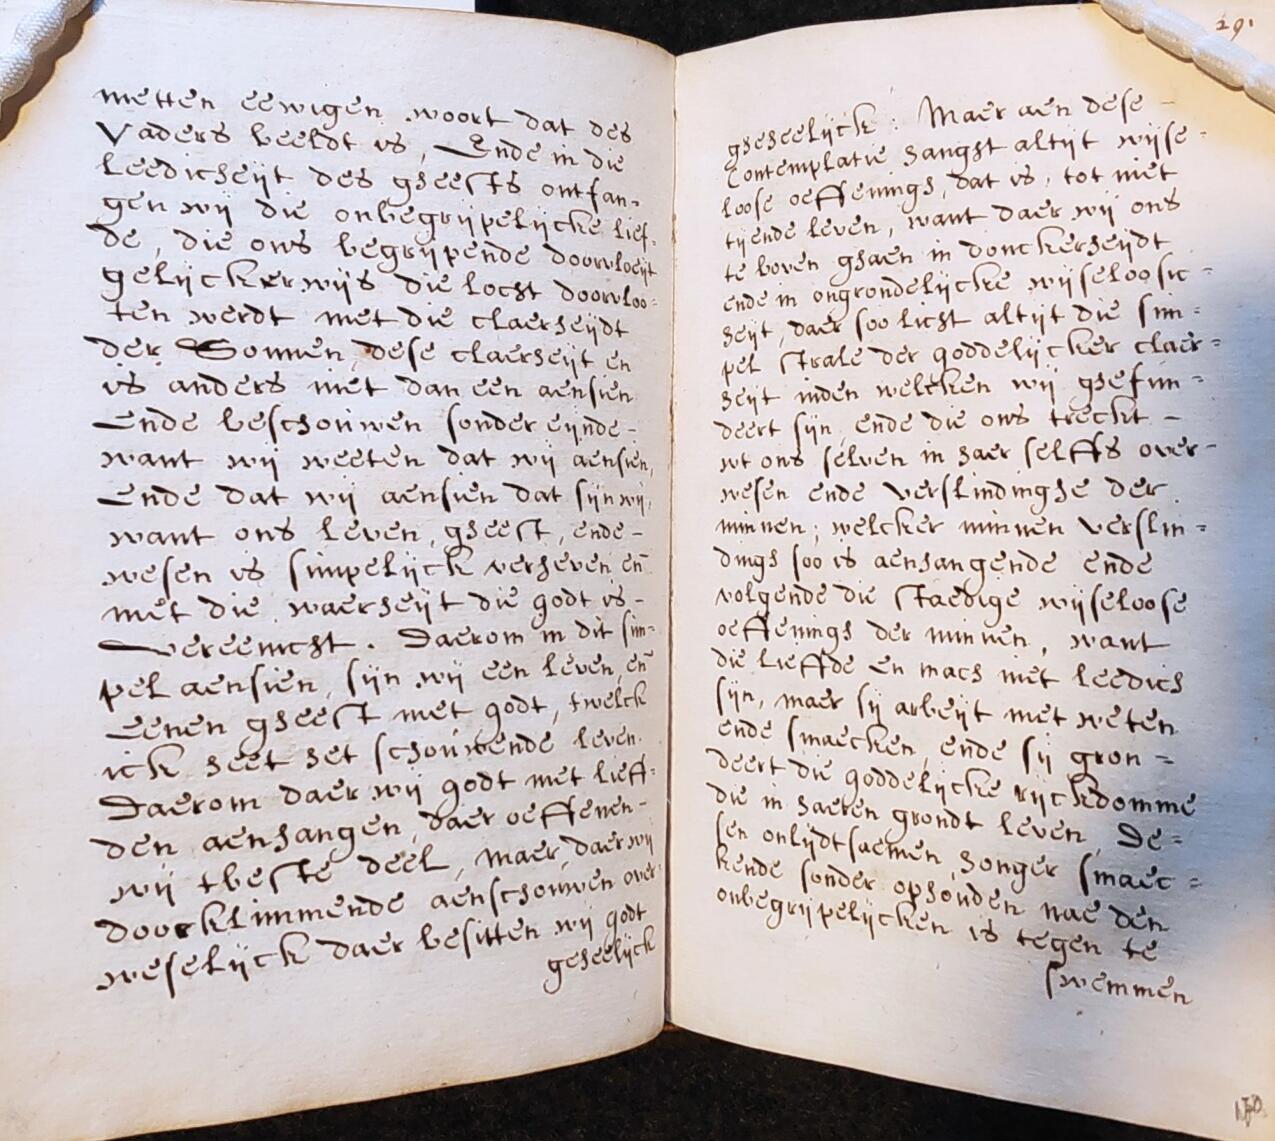 metten eewigen woort dat des
Vaders beeldt is, Ende in die
leedicheijt des gheests ontfan-
gen wij die onbegrijpelijcke lief-
de, die ons begrijpende doorvloeijt
gelijckerwijs die locht doorvloo-
ten werdt met die claerheijdt
der Sonnen, dese claerheijt en
is anders niet dan een aensien
Ende beschouwen sonder eijnde-
want wij weeten dat wij aensien,
Ende dat wij aensien dat sijn wij,
want ons leven, gheest, ende-
wesen is simpelijck verheven en̄
met die waerheijt die godt is-
vereenicht. Daerom in dit sim-
pel aensien, sijn wij een leven, en̄
Eenen gheest met godt, twelck
ick heet het schouwende leven.
Daerom daer wij godt met lieff-
den aenhangen, daer oeffenen-
wij tbeste deel, maer, daer wij
doorklimmende aenschouwen over-
weselijck daer besitten wij godt
geheelijck
29.
gheheelijck: Maer aen dese-
Contemplatie hanght altijt wijse-
loose oeffeningh, dat is, tot niet
tijende leven, want daer wij ons
te boven ghaen in donckerheijdt
ende in ongrondelijcke wijseloosic-
heijt, daer soo licht altijt die sim-
pel strale der goddelijcker claer-
heijt inden welcken wij ghefun-
deert sijn, ende die ons treckt-
wt ons selven in haer selffs over-
wesen ende verslindinghe der
minnen; welcker minnen verslin-
dingh soo is aenhangende ende
volgende die staedige wijseloose
oeffeningh der minnen, want
die lieffde en mach niet leedich
sijn, maer sij arbeijt met weten
ende smaecken, ende sij gron-
deert die goddelijcke rijckdomme
die in haeren grondt leven, De-
sen onlijdtsaemen honger smaec-
kende sonder ophouden nae den
onbegrijpelijcken is tegen te
swemmen